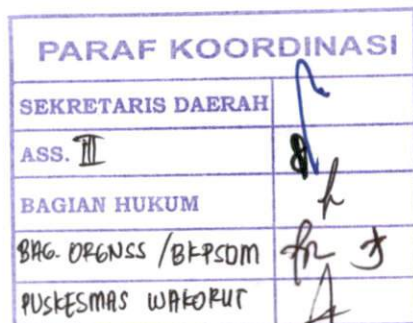 PARAF KOORDINASI
SEKRETARIS DAERAH
ASS. III
BAGIAN HUKUM
BAG. ORGNSS / BKPSDM
PUSKESMAS WAKORUT